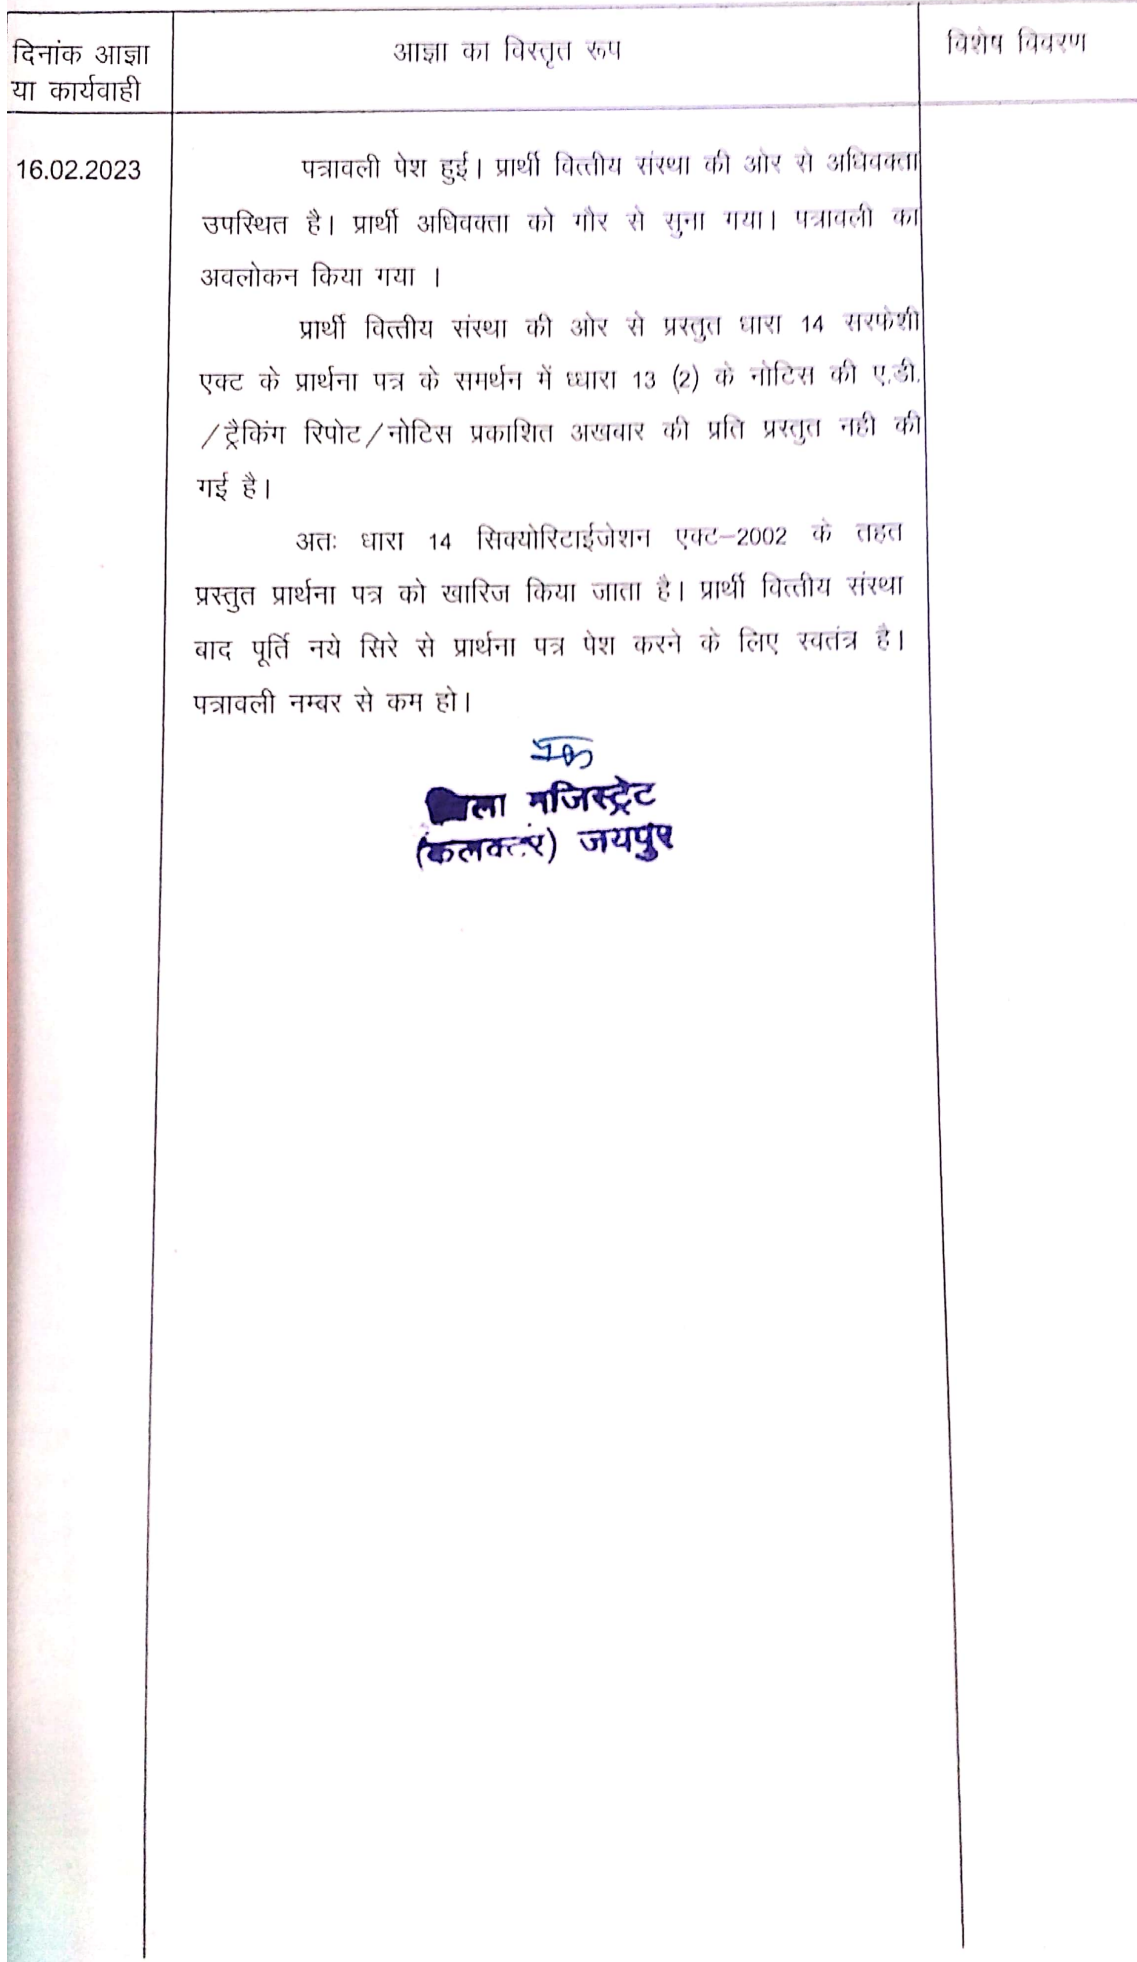 दिनांक आज्ञा
या कार्यवाही
आज्ञा का विस्तृत रूप
विशेष विवरण
16.02.2023
पत्रावली पेश हुई। प्रार्थी वित्तीय संस्था की ओर से अधिवक्ता
उपस्थित है। प्रार्थी अधिवक्ता को गौर से सुना गया। पत्रावली का
अवलोकन किया गया ।
प्रार्थी वित्तीय संस्था की ओर से प्रस्तुत धारा 14 सरफेशी
एक्ट के प्रार्थना पत्र के समर्थन में ध्धारा 13 (2) के नोटिस की ए.डी.
/ट्रैकिंग रिपोट/नोटिस प्रकाशित अखबार की प्रति प्रस्तुत नही की
गई है।
अतः धारा 14 सिक्योरिटाईजेशन एक्ट-2002 के तहत
प्रस्तुत प्रार्थना पत्र को खारिज किया जाता है। प्रार्थी वित्तीय संस्था
बाद पूर्ति नये सिरे से प्रार्थना पत्र पेश करने के लिए स्वतंत्र है।
पत्रावली नम्बर से कम हो।
जिला मजिस्ट्रेट
(कलक्टर) जयपुर